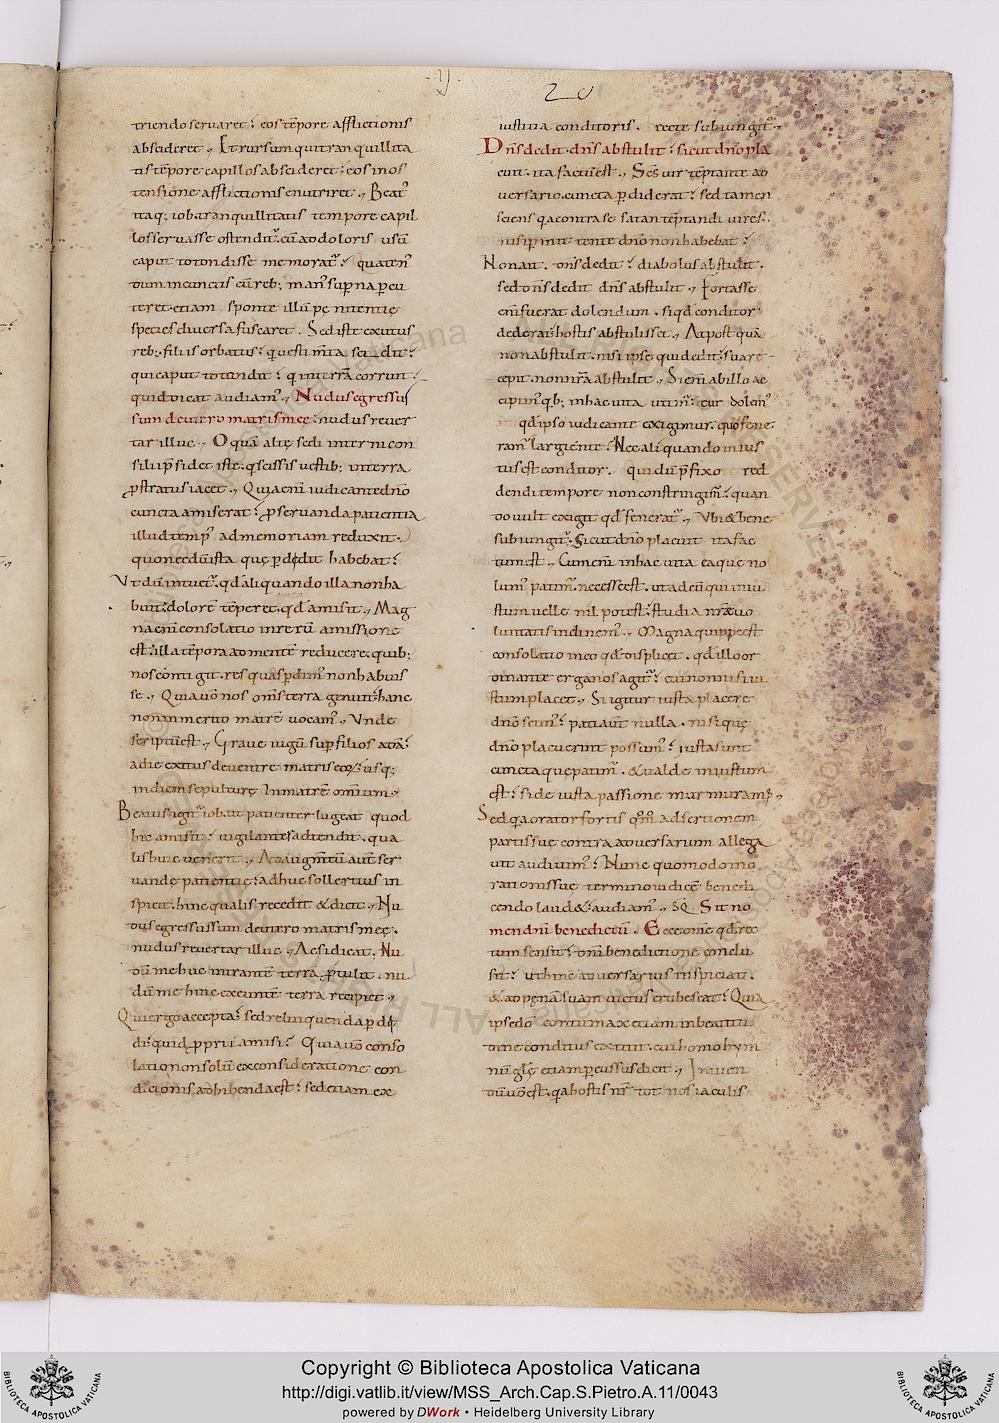 20
triendo servaret; eos tēpore afflictionis
abscideret., Et rursum qui tranquillita
tis tēpore capillos abscideret; eos in os
tensione afflictionis enutriret., Beat'
itaq; iob tranquillitatis tempore capil
los servasse ostendit', cū ad doloris usū
caput totondisse memorat'; quaten'
dum in cunctis eū reb; man'
teret etiam sponte illū pęnitentię
species diversa fuscaret. Sed iste exutus
reb; filiis orbatus;
qui caput totondit; q in terrā corruit;
quid dicat audiam'., Nudus egressus
sum de utero matris meę; nudus rever
tar illuc., O quā altę sedi interni con
silii p̄sidet iste; q scissis vestib; in terra
ꝓstratus iacet., Quia enī iudicante dn̄o
cuncta amiserat; ꝓ servanda patientia
illud temp' ad memoriam reduxit.
quo necdū ista quę ꝑdędit habebat;
Ut dū intuet'. qđ aliquando illa non ha
buit; dolorē tēperet. qđ amisit., Mag
na enī consolatio in rerū amissione
est; illa tēpora ad mentē reducere; quib;
nos cōntigit. res quas ꝑdim' non habuis
se., Quia v̄o nos om̄s terra genuit; hanc
non inmerito matrē vocam'., Unde
scriptū est., Grave iugū sup̄ filios adā;
a die exitus de ventre matris eoꝝ; usq;
in diem sepulturę in matrē omnium.,
Beatus igit' iob. ut patienter lugeat quod
hic amisit; vigilanter adtendit. qua
lis huc venerit., Ad augm̄tū aut̄ ser
vandę patientię; adhuc sollertius in
spicit. hinc qualis recedit & dicit., Nu
dus egressus sum de utero matris meę.
nudus revertar illuc., Ac si dicat. Nu
dū me huc intrantē terra ꝓtulit. nu
dū me hinc exeuntē terra recipiet.,
Qui ergo accepta; sed relinquenda ꝑdę
di; quid ꝓprii amisi; Quia v̄o conso
latio non solū ex consideratione con
dicionis adhibenda est; sed etiam ex
iustitia conditoris. recte subiungit'.,
Dn̄s dedit. dn̄s abstulit; sicut dn̄o pla
cuit. ita factū est., Sc̄s vir tēptante ad
versario. cuncta ꝑdiderat; sed tamen
sciens q̄a contra se satan tēptandi vires.
nisi permittente dn̄o non habebat;
Non ait. dn̄s dedit; diabolus abstulit.
sed dn̄s dedit dn̄s abstulit., Fortasse
enī fuerat dolendum. si qđ conditor
dederat; hostis abstulisset., At postquā
non abstulit. nisi ipse qui dedit; sua re
cepit. non nr̄a abstulit., Si enī ab illo ac
cipim' q̄b; in hac vita utim'; cur dolem'
qđ ipso iudicante exigimur. quo fene
ram' largiente; Nec aliquando inius
tus est conditor. qui dū p̄fixo red
dendi tempore non constringit'; quan
do vult exigit qđ fenerat'., Ubi & bene
subiungit'; Sicut dn̄o placuit ita fac
tum est., Cum enī in hac vita ea quę no
lum' patim'. necesse est. ut ad eū qui iniu
stum velle nil potest; studia nr̄ę vo
luntatis inclinem'., Magna quippe est
consolatio in eo qđ displicet. qđ illo or
dinante erga nos agit'; cui non nisi iu
stum placet., Si igitur iusta placere
dn̄o scim'; pati aut̄ nulla. nisi quę
dn̄o placuerint possum'; iusta sunt
cuncta quę patim'. & valde iniustum
est; si de iusta passione murmuram'.,
Sed q̄a orator fortis q̄m̄ adsertionem
partis suę contra adversarium allega
vit audivim'; Nunc quomodo in o
rationis suę termino iudicē benedi
cendo laud&; audiam'., SQ. Sit no
men dn̄i benedictū. Ecce om̄e qđ rec
tum sensit; dn̄i benedictione conclu
sit; ut hinc adversarius inspiciat.
& ad pęnā suam victus erubescat; Quia
ipse dō contumax etiam in beatitu
dine conditus extitit. cui homo hym
nū glę etiam ꝑcussus dicit., Intuen
dū v̄o est. q̄a hostis nr̄ tot nos iaculis
Copyright © Biblioteca Apostolica Vaticana
http://digi.vatlib.it/view/MSS_Arch.Cap.S.Pietro.A.11/0043
powered by DWork • Heidelberg University Library
BIBLIOTECA APOSTOLICA VATICANA
BIBLIOTECA APOSTOLICA VATICANA